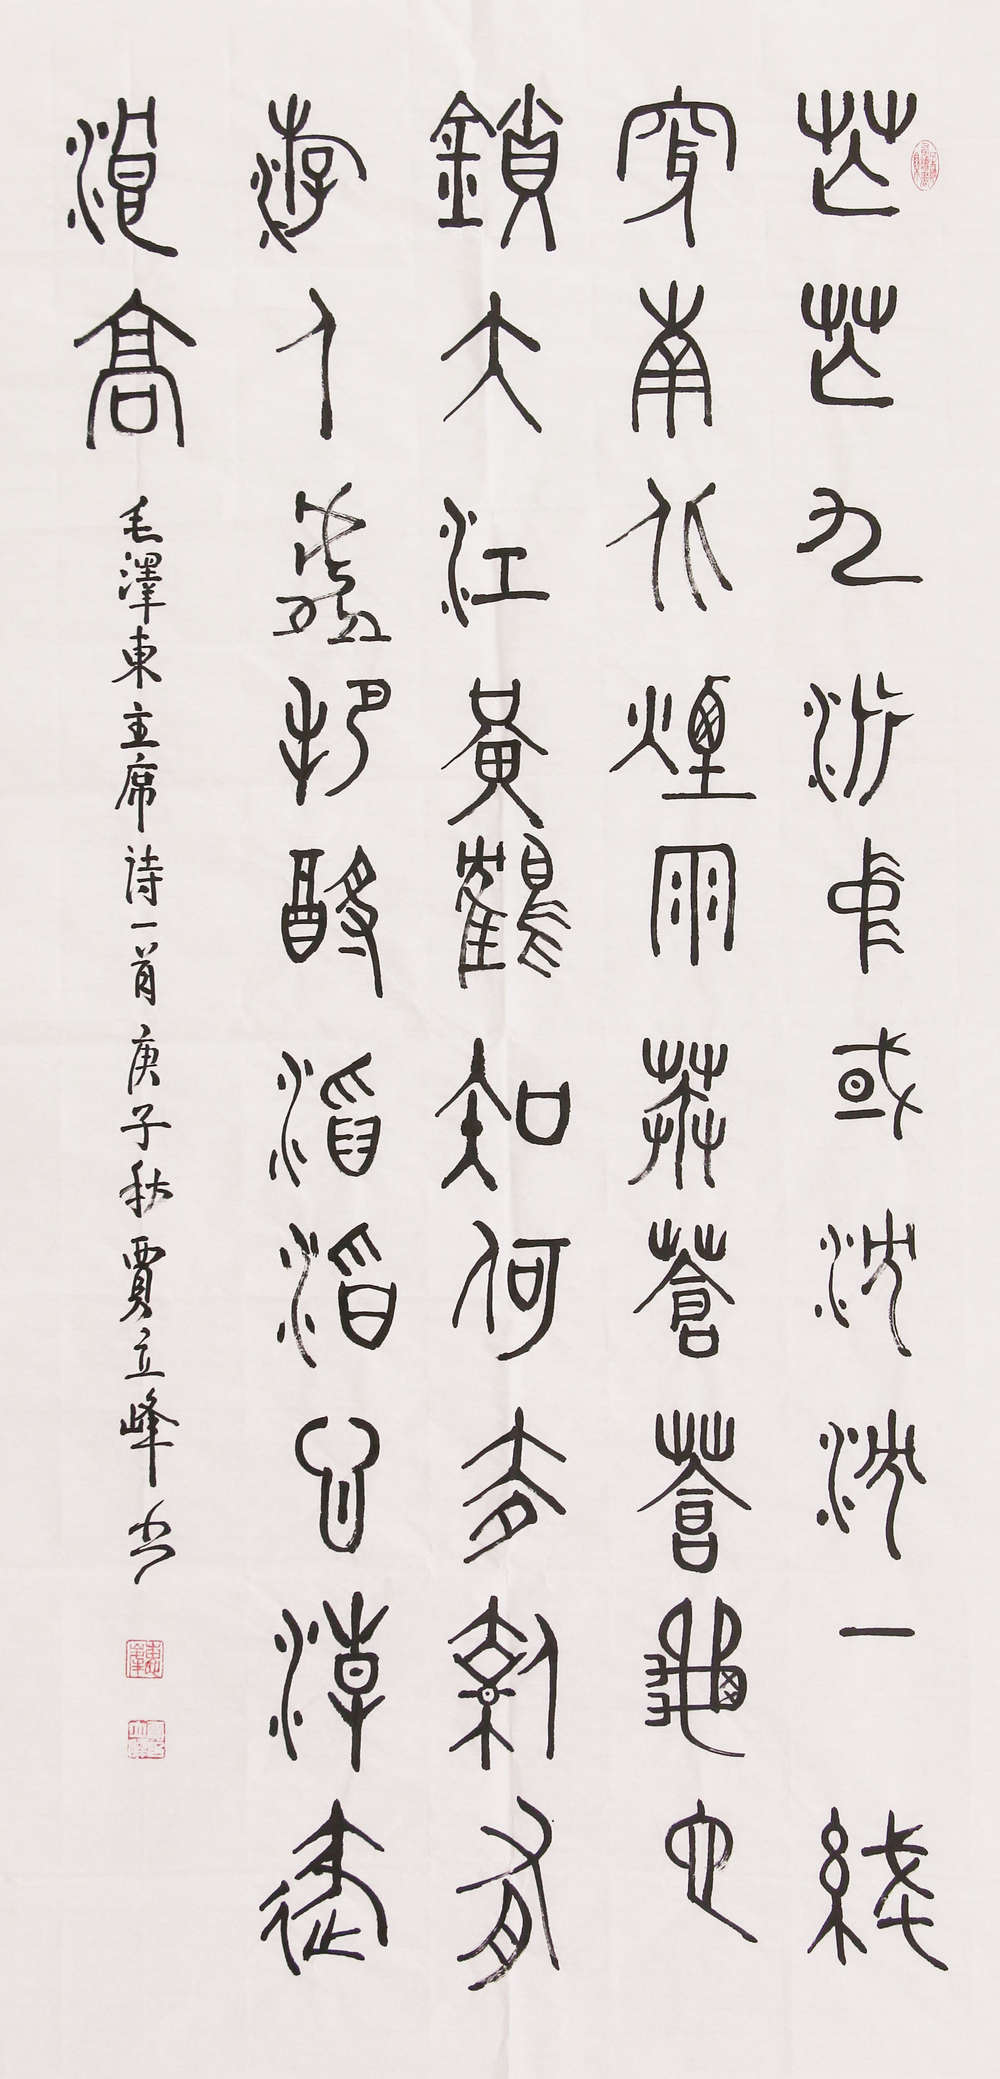 芒芒九派中或沈沈一綫
穿南北煙雨莽蒼蒼龜它
鎖大江黃鶴知何去剩有
游人處把酹滔滔心潮逐
浪高
毛澤東主席詩一首庚子秋賈立峰书